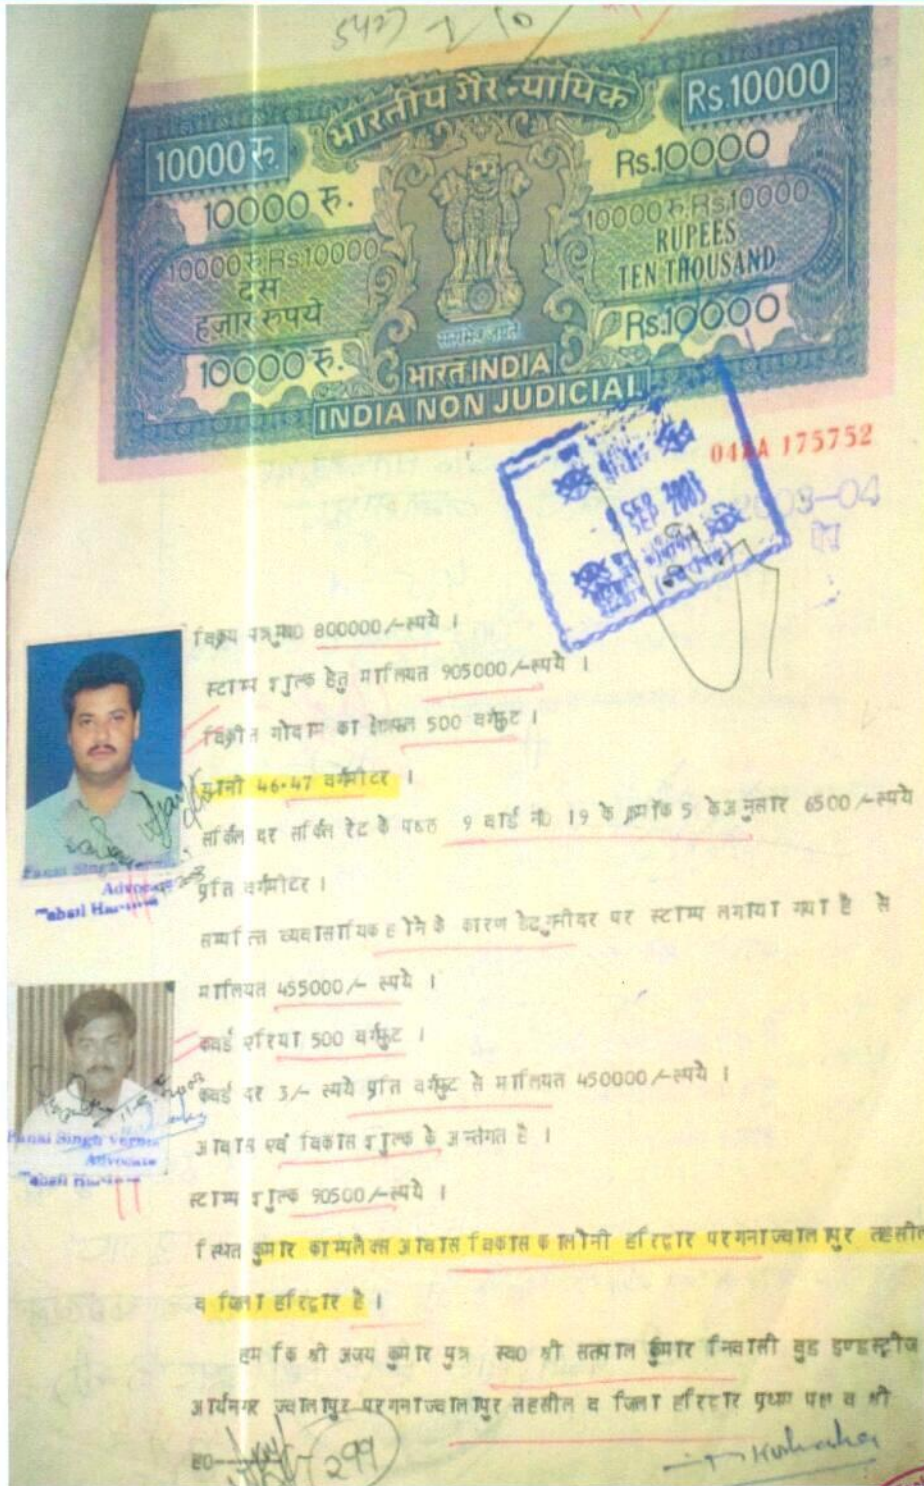 5427 2 10
भारतीय गैर न्यायिक
10000 रु. Rs 10000
10000 रु. Rs.10000
10000 रु. Rs10000 10000 रु. Rs10000
दस RUPEES
हजार रुपये TEN THOUSAND
10000 रु. Rs.10000
सत्यमेव जयते
भारत INDIA
INDIA NON JUDICIAL
175752
SEP 2003
2003-04
विक्रय पत्र मु0 800000/-रूपये ।
स्टाम्प शुल्क हेतु मालियत 905000/-रूपये ।
विक्रीत गोदाम का क्षेत्रफल 500 वर्गफुट ।
यानी 46.47 वर्गमीटर ।
सर्किल दर सर्किल रेट के पृष्ठ 9 वार्ड नं0 19 के क्रमांक 5 के अनुसार 6500/-रूपये
प्रति वर्गमीटर ।
सम्पत्ति व्यवसायिक होने के कारण पर स्टाम्प लगाया गया है से
मालियत 455000/- रूपये ।
कवर्ड एरिया 500 वर्गफुट ।
कवर्ड दर 3/- रूपये प्रति वर्गफुट से मालियत 450000/-रूपये ।
आवास एवं विकास शुल्क के अन्तर्गत है ।
स्टाम्प शुल्क 90500/-रूपये ।
स्थित कुमार काम्पलैक्स आवास विकास कालोनी हरिद्वार परगना ज्वालापुर तहसील
व जिला हरिद्वार है ।
हम कि श्री अजय कुमार पुत्र स्व0 श्री सतपाल कुमार निवासी वुड इण्डस्ट्रीज
आर्यनगर ज्वालापुर परगना ज्वालापुर तहसील व जिला हरिद्वार प्रथम पक्ष व श्री
ह0
299
Singh
Advocate
Singh Verma
Advocate